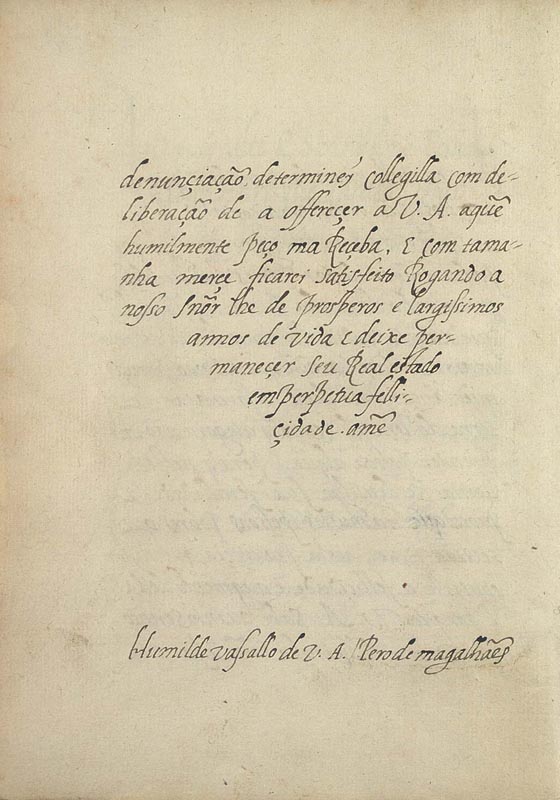 denunçiação, determiney collegilla com de-
liberação de a offereçer a V. A. aquē
humilmente peço ma Reçeba, E com tama-
nha merçe ficarei satisfeito Rogando a
nosso Snõr lhe de prosperos e largissimos
annos de vida E deixe per-
maneçer seu Real estado
em perpetua felli-
çidade. amē
Humilde vassallo de V. A. Pero de magalhães